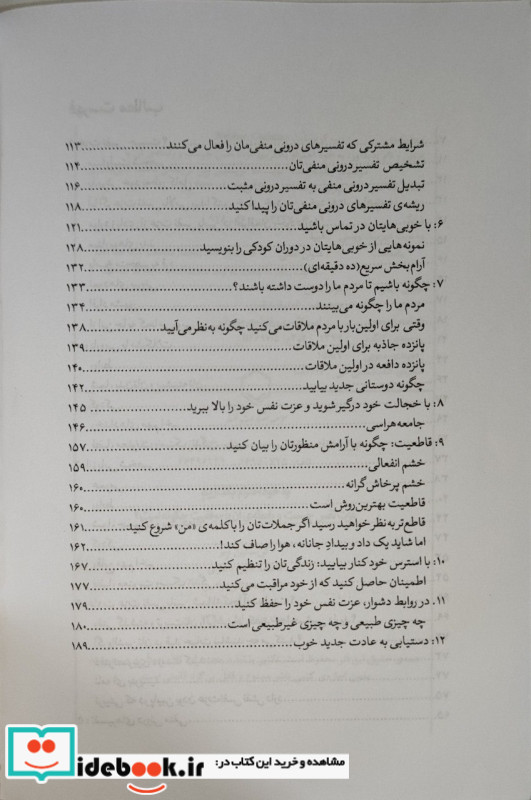 شرایط مشترکی که تفسیرهای درونی منفی‌مان را فعال می‌کنند......................۱۱۳
تشخیص تفسیر درونی منفی‌تان......................۱۱۴
تبدیل تفسیر درونی منفی به تفسیر درونی مثبت......................۱۱۶
ریشه‌ی تفسیرهای درونی منفی‌تان را پیدا کنید......................۱۱۸
۶: با خوبی‌هایتان در تماس باشید......................۱۲۱
نمونه‌هایی از خوبی‌هایتان در دوران کودکی را بنویسید......................۱۲۸
آرام‌بخش سریع(ده دقیقه‌ای)......................۱۳۲
۷: چگونه باشیم تا مردم ما را دوست داشته باشند؟......................۱۳۳
مردم ما را چگونه می‌بینند......................۱۳۴
وقتی برای اولین بار با مردم ملاقات می‌کنید چگونه به نظر می‌آیید......................۱۳۸
پانزده جاذبه برای اولین ملاقات......................۱۳۹
پانزده دافعه در اولین ملاقات......................۱۴۰
چگونه دوستانی جدید بیابید......................۱۴۲
۸: با خجالت خود درگیر شوید و عزت نفس خود را بالا ببرید......................۱۴۵
جامعه‌هراسی......................۱۴۶
۹: قاطعیت: چگونه با آرامش منظورتان را بیان کنید......................۱۵۷
خشم انفعالی......................۱۵۹
خشم پرخاش‌گرانه......................۱۶۰
قاطعیت بهترین روش است......................۱۶۰
قاطع‌تر به نظر خواهید رسید اگر جملات‌تان را با کلمه‌ی «من» شروع کنید......................۱۶۱
اما شاید یک داد و بیدادِ جانانه، هوا را صاف کند!......................۱۶۲
۱۰: با استرس خود کنار بیایید: زندگی‌تان را تنظیم کنید......................۱۶۷
اطمینان حاصل کنید که از خود مراقبت می‌کنید......................۱۷۷
۱۱. در روابط دشوار، عزت نفس خود را حفظ کنید......................۱۷۹
چه چیزی طبیعی و چه چیزی غیرطبیعی است......................۱۸۰
۱۲: دستیابی به عادت جدید خوب......................۱۸۹
مشاهده و خرید این کتاب در:
idebook.ir